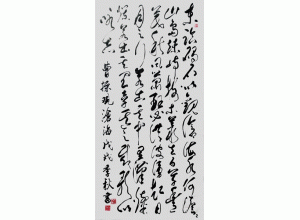 东临碣石以观沧海水何澹澹
山岛竦峙树木丛生百草丰
茂秋风萧瑟洪波涌起日
月之行若出其中星汉灿
烂若出其里幸甚至哉歌以
咏志 曹操观沧海 戊戌